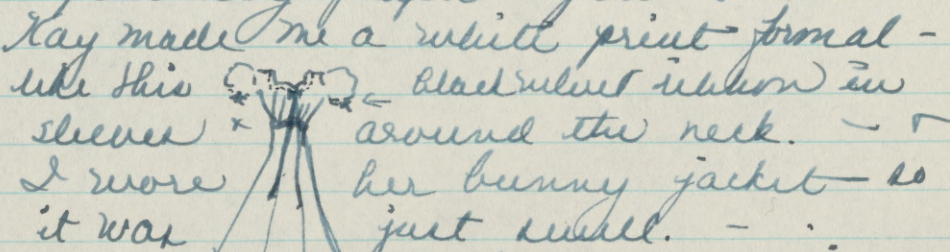 Kay made me a white print formal -
like this ← black velvet ribbon in
sleeves x around the neck. -
I wore her bunny jacket - so
it was just swell. -